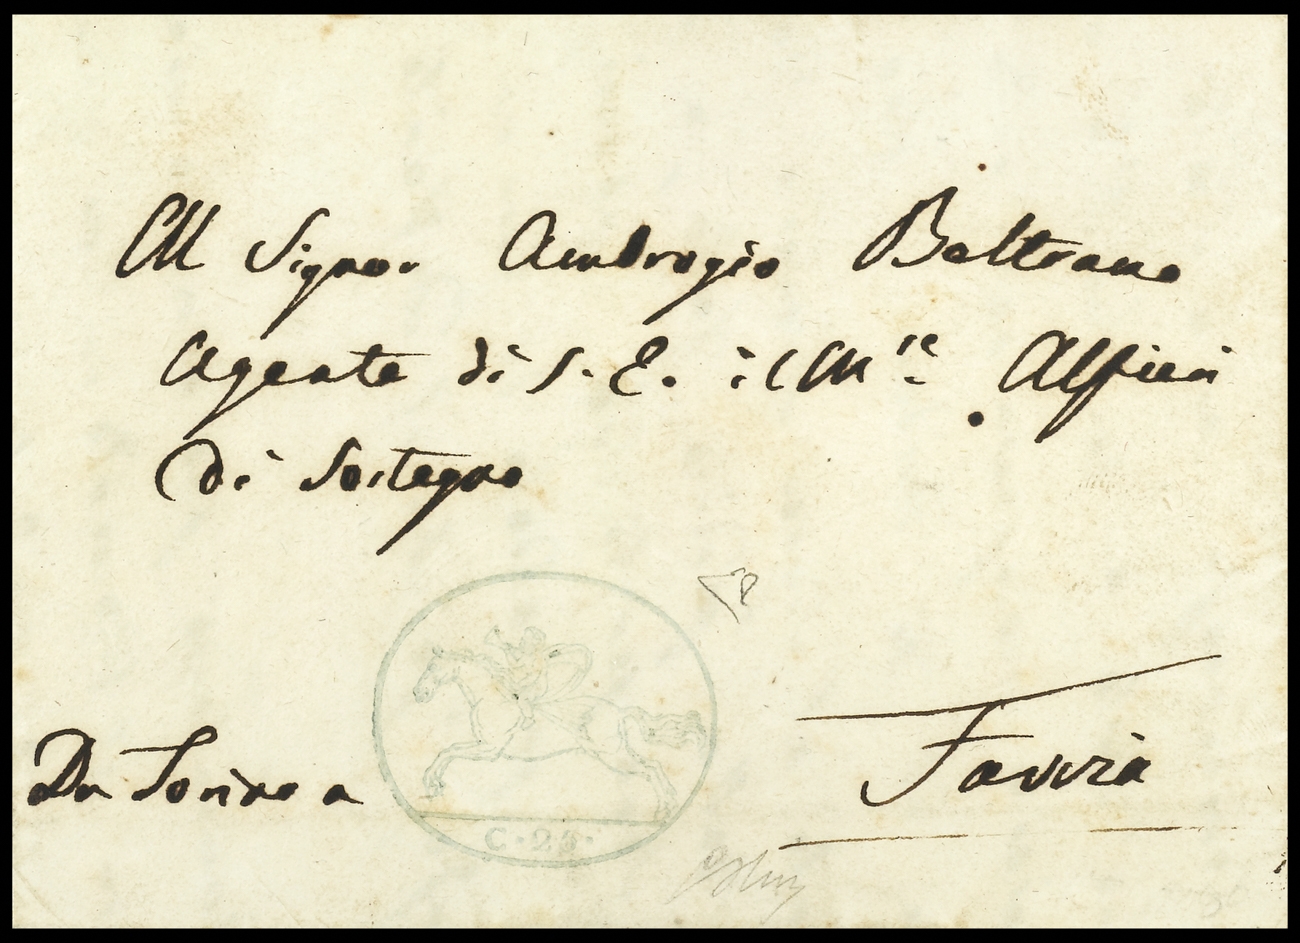 All Signor Ambrogio Beltramo
Agente di S. E. il M.se Alfieri
Di Sostegno
Da Torino a
Favria
C. 25.